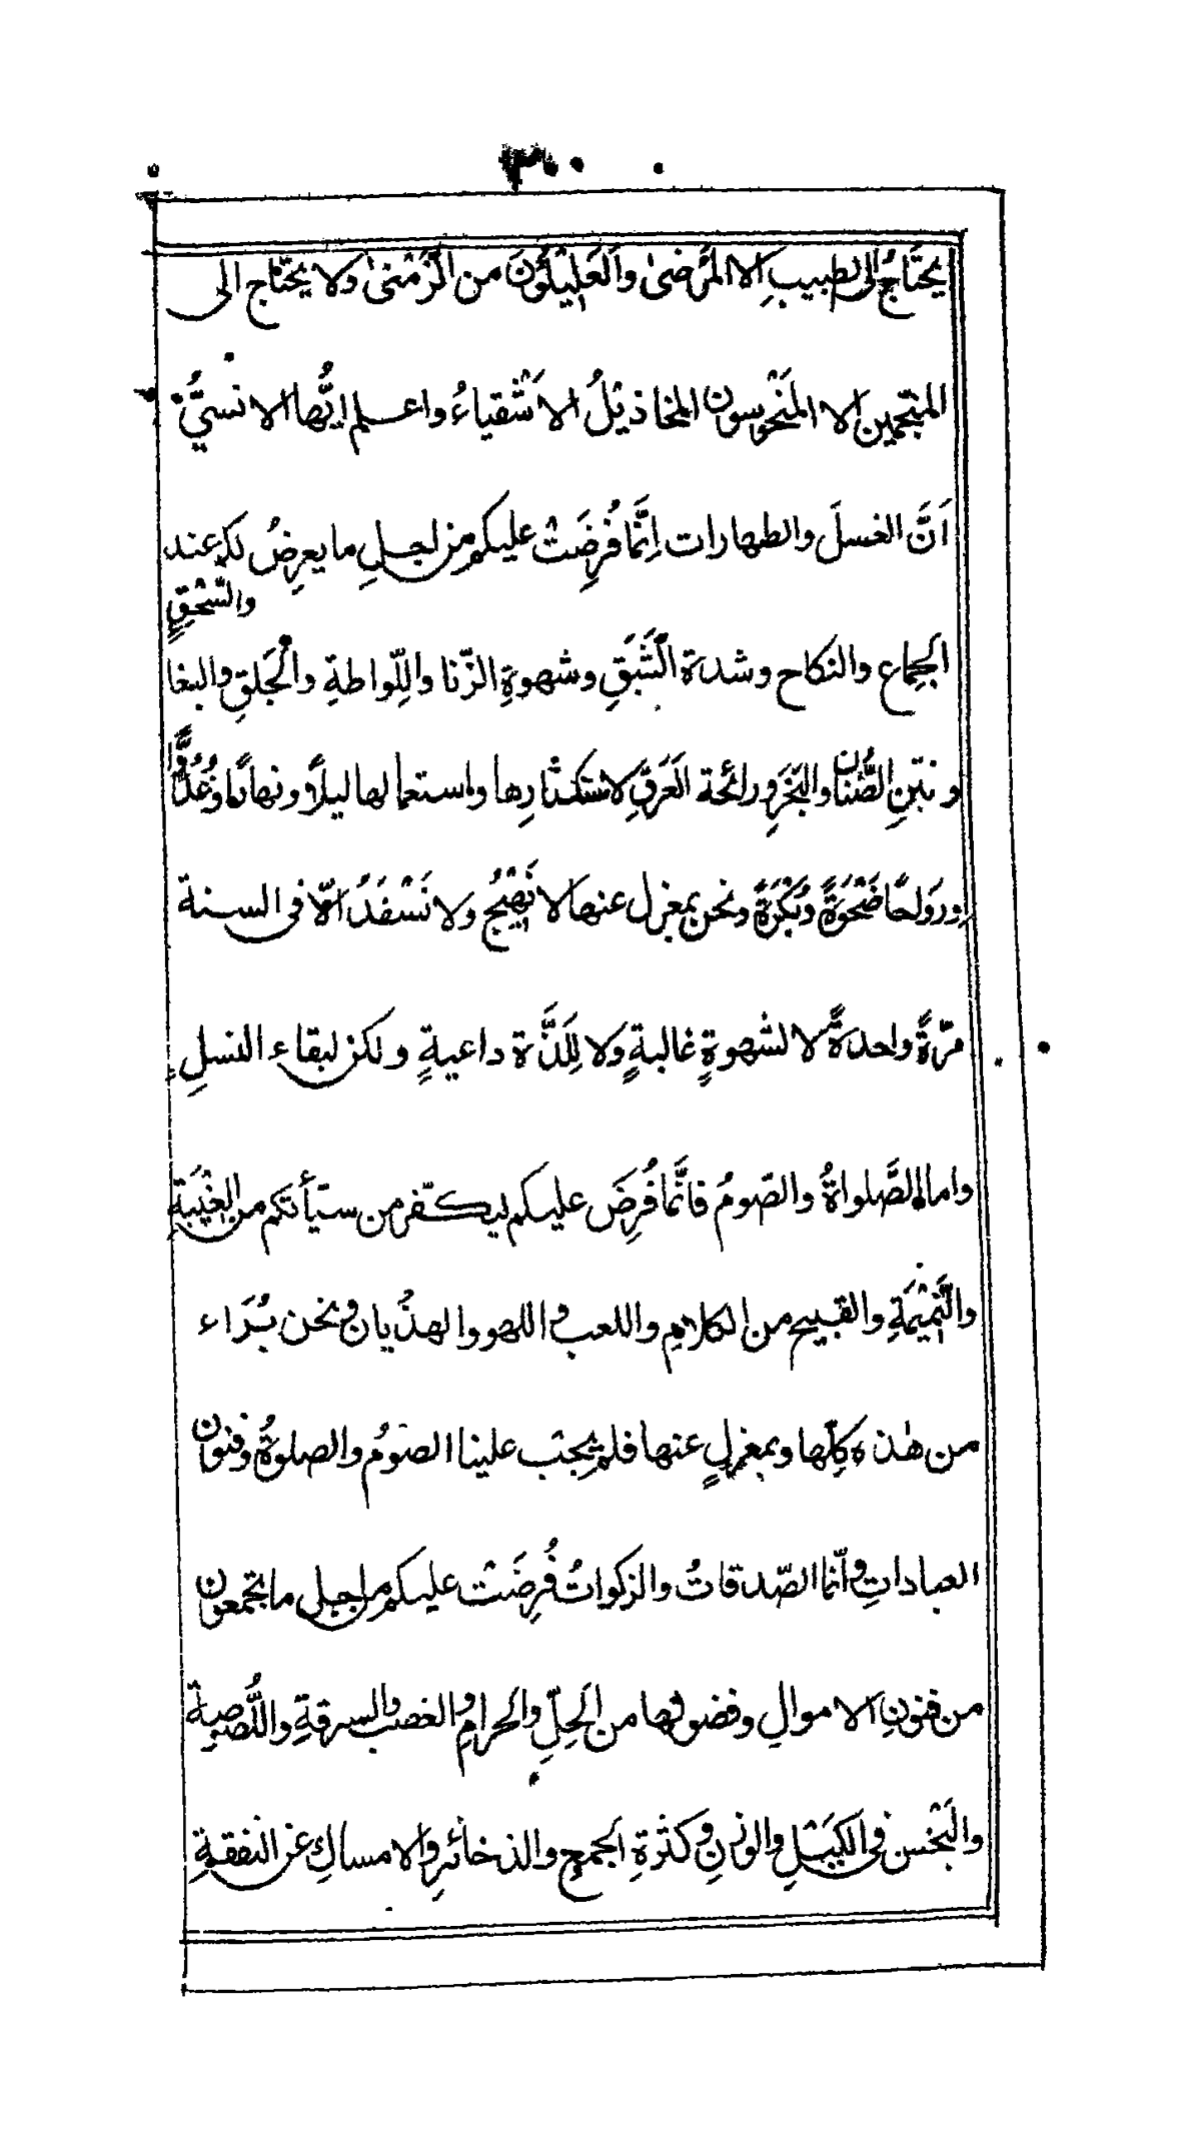 ٣٠٠
يحتَاجُ الى الطبيبِ الا المَرْضىٰ والعَلِيْلُوْنَ من الزَمْنىٰ ولا يحتاج الى
المنجّمين الا المَنْحُوسون المخاذيْلُ الاَشْقياءُ واعلم ايُّها الانسيُّ
اَنَّ الغسلَ والطهارات اِنَّما فُرِضَتْ عليكم من اجلِ ما يعرِضُ لكم عند
والسَّحْقِ
الجِماع والنكاح وشدة الشَّبَقِ وشهوةِ الزّنا واللِّواطةِ والْجَلقِ والبغا
ونتنِ الصُّنَانِ والبَخَرِ ورائحة العَرَقِ لاستكثارِها واستعمالها ليلاً ونهارًا وغُدُوًّا
ورَواحًا ضَحْوَةً وبُكْرَةً ونحن بمعزل عنها لا نَهِيْجُ ولا نَسْفَدُ الّا في السنة
مرّةً واحدةً لا لشهوةٍ غالبةٍ ولا لِلَذَّة داعيةٍ ولكن لبقاء النسلِ
واما الصَّلواةُ والصّومُ فانَّما فُرِضَ عليكم ليكفّر من سيّأتكم من الغِيْبَةِ
والنَّمِيْمَةِ والقبيح من الكلامِ واللعب واللهو والهذْيان ونحن بُرَاء
من هٰذه كلِّها وبمعزلٍ عنها فلم يجبْ علينا الصومُ والصلوةُ وفنون
العباداتِ وانّما الصّدقاتُ والزكواتُ فُرِضَتْ عليكم من اجل ما تجمعون
من فنونِ الاموالِ وفضولها من الحِلِّ والحرامِ والغصب والسرقةِ واللُّصوصية
والبَخْسِ في الكَيْلِ والوزنِ وكثرةِ الجمعِ والذخائرِ والامساكِ عن النفقةِ